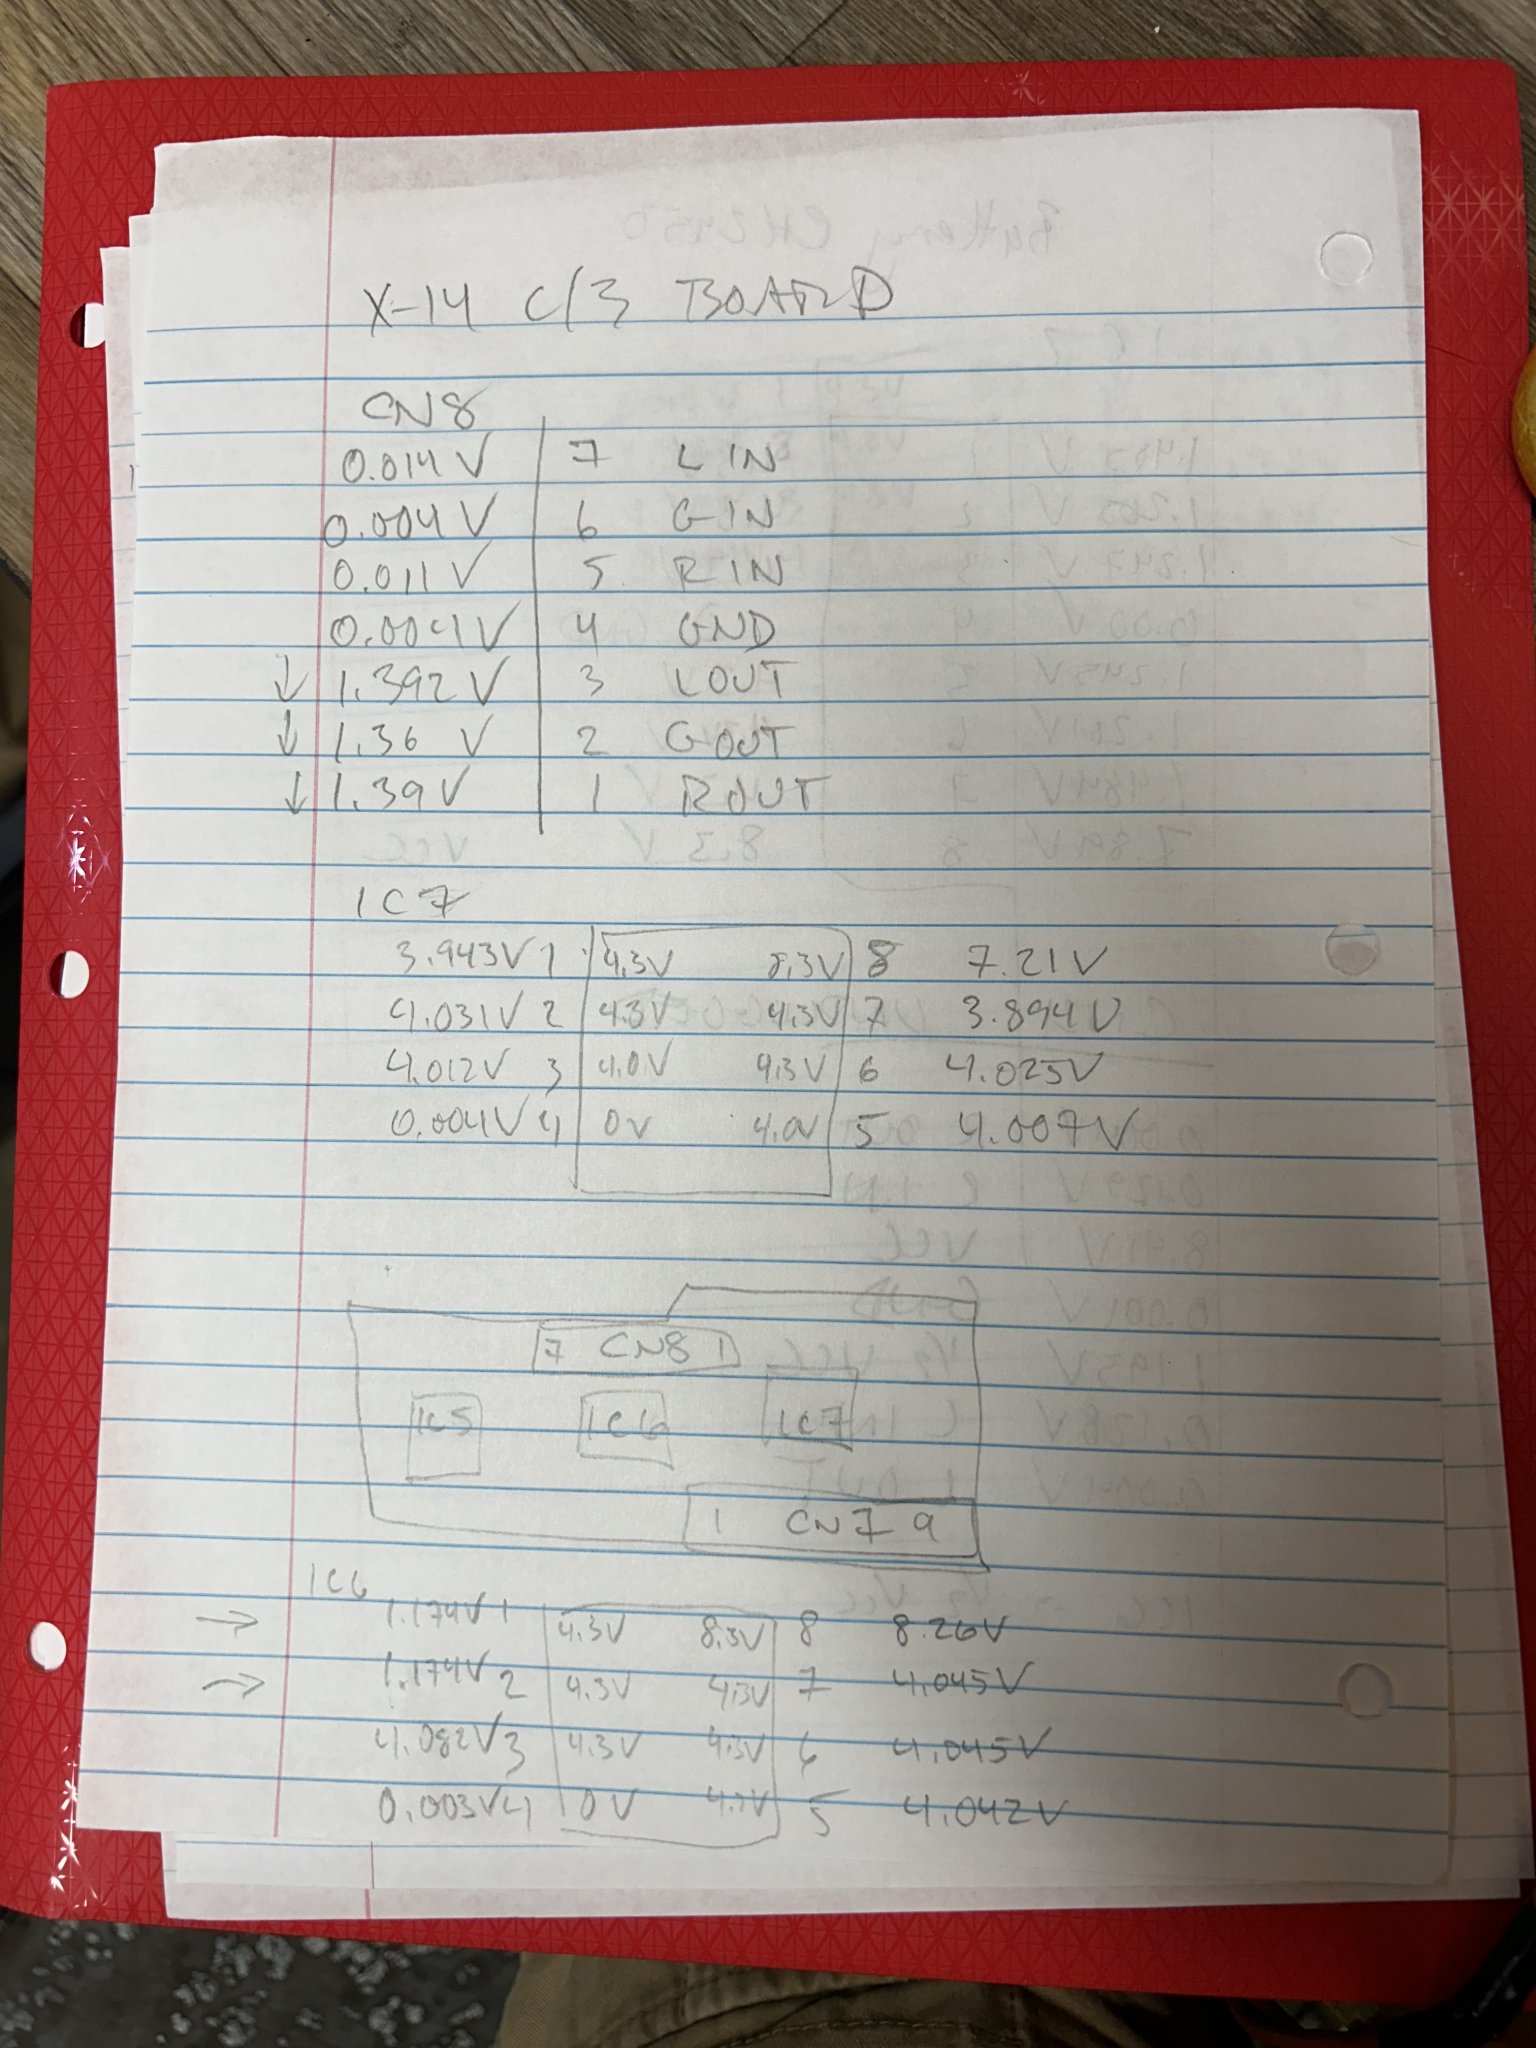 X-14 C/3 BOARD
CN8
0.014 V 7 L IN
0.004 V 6 G IN
0.011 V 5 R IN
0.004 V 4 GND
↓ 1.392 V 3 LOUT
↓ 1.36 V 2 GOUT
↓ 1.39 V 1 ROUT
IC7
3.943V 1 4.3V 8.3V 8 7.21V
4.031V 2 4.3V 4.3V 7 3.894V
4.012V 3 4.0V 4.3V 6 4.025V
0.004V 4 0V 4.0V 5 4.007V
7 CN8 1
IC5 IC6 IC7
1 CN7 9
IC6
→ 1.174V 1 4.3V 8.3V 8 8.26V
→ 1.174V 2 4.3V 4.3V 7 4.045V
4.082V 3 4.3V 4.3V 6 4.045V
0.003V 4 0V 5 4.042V